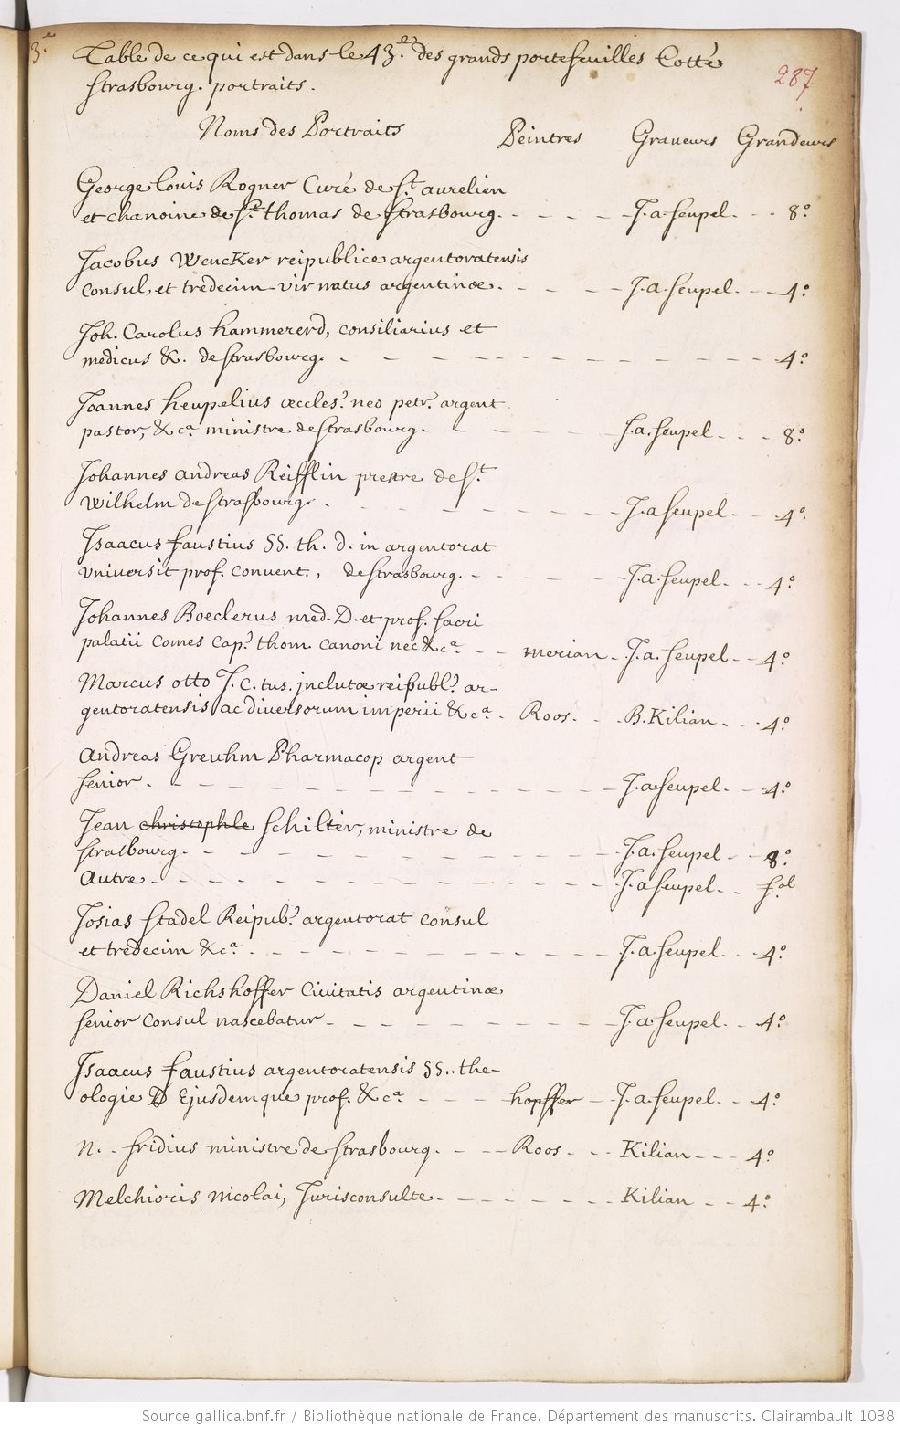 3.e
Table de ce qui est dans le 43.e des grands portefeuilles Cotté
Strasbourg. portraits.
287
Noms des Portraits Peintres Graveurs Grandeurs
George Louis Rogner Curé de St. aurelien
et chanoine de St. thomas de Strasbourg. - - - - J. a. Seupel. - - 8.o
Jacobus Wencker reipublicæ argentoratensis
Consul, et tredecim-vir natus argentinæ. - - - - J. a. Seupel. - - 4.o
Joh. Carolus hammererd, consiliarius et
medicus &. de Strasbourg. - - - - - - - - - - 4.o
Joannes heupelius eccles.æ neo petr.æ argent
pastor, & c.a ministre de Strasbourg. - - - - J. a. Seupel. - - - 8.o
Johannes andreas Reifflin prestre de St.
Wilhelm de Strasbourg. - - - - - - J. a Seupel - - 4.o
Isaacus faustius SS. th. d. in argentorat
Universit prof. convent. de Strasbourg. - - - J. a Seupel. - - 4.o
Johannes Boeclerus med. D. et prof. sacri
palatii comes cap.o thom canoni nec & c.a - - merian - J. a. Seupel - - 4.o
Marcus otto J. C. tus. inclutæ reipubl.æ ar-
gentoratensis ac diversorum imperii & c.a - Roos. - - B. Kilian. - - - 4.o
Andreas Greuhm Pharmacop argent
senior. - - - - - - - - - J. a Seupel. - - 4.o
Jean christophle Schilter, ministre de
Strasbourg. - - - - - - - - J. a. Seupel - - 8.o
Autre. - - - - - - - - - J. a Seupel. - - fol
Josias Stadel Reipub.æ argentorat consul
et tredecim & c.a - - - - - - - J. a. Seupel. - - 4.o
Daniel Richshoffer Civitatis argentinæ
senior Consul nascebatur - - - - - - J. a. Seupel. - - 4.o
Isaacus faustius argentoratensis SS. the-
ologie D Ejusdemque prof. & c.a - - - hopffer - J. a. Seupel. - - 4.o
N. - fridius ministre de Strasbourg. - - - Roos. - - Kilian - - - 4.o
Melchioris nicolai, Jurisconsulte - - - - - - Kilian - - 4.o
Source gallica.bnf.fr / Bibliothèque nationale de France. Département des manuscrits. Clairambault 1038